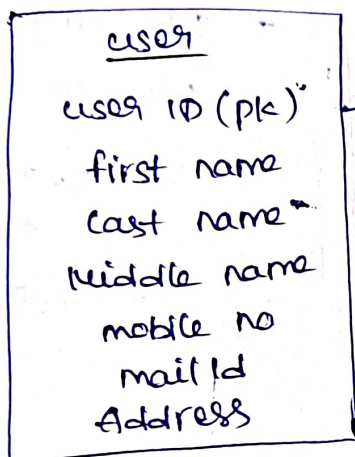 user
user ID (pk)
first name
Last name
Middle name
mobile no
mail Id
Address